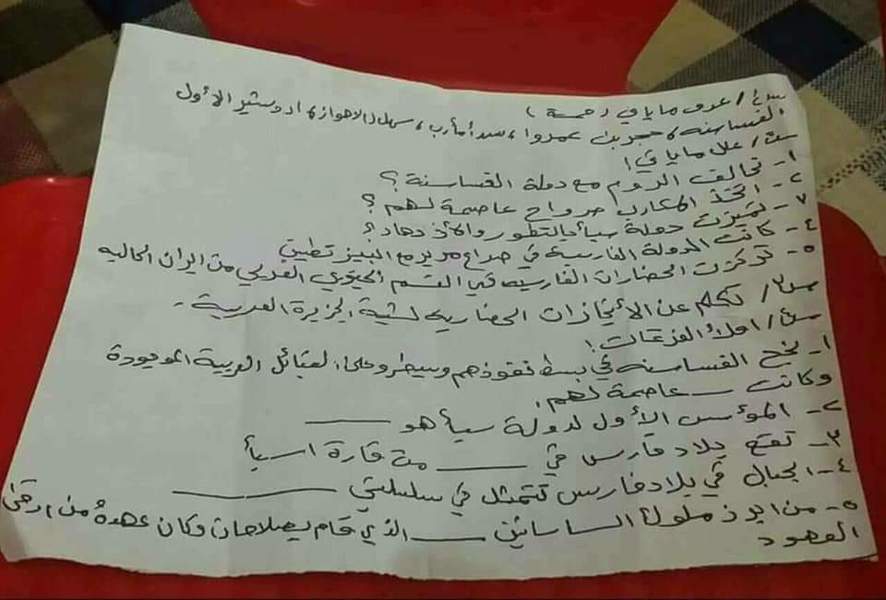 س١/ عرف ما يأتي (خمسة)
الغساسنة، حجر بن عمروا، سد مأرب، سهل الاهواز، اردشير الأول
س٢/ علل ما يأتي!
١- تحالف الروم مع دولة الغساسنة؟
٢- اتخذ المكارب صرواح عاصمة لهم؟
٣- تميزت دولة سبأ بالتطور والأزدهار؟
٤- كانت الدولة الفارسية في صراع مرير مع البيزنطيين
٥- تركزت الحضارات الفارسيه في القسم الجنوبي الغربي من ايران الحاليه
س٣/ تكلم عن الأنجازات الحضاريه لشبة الجزيرة العربية.
س٤/ املأ الفرغات!
١- نجح الغساسنه في بسط نفوذهم وسيطروعلى القبائل العربية الموجودة
وكانت ___ عاصمة لهم.
٢- المؤسس الأول لدولة سبأ هو ______
٣- تقع بلاد فارس في ______ من قارة اسيأ
٤- الجبال في بلاد فارس تتمثل في سلسلتي __________
٥- من ابرز ملوك الساسانين ____ الذي قام بصلاحات وكان عهدهُ من ارقى
العهود